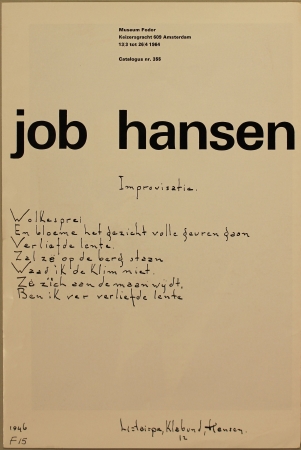 Museum Fodor
Keizersgracht 609 Amsterdam
13/3 tot 26/4 1964
Catalogus nr. 386
job hansen
Improvisatie.
Wolkesprei
En bloeme het gezicht volle geuren gaan
Verliefde lente.
Zal ze op de berg staan
Waad ik de Klim niet.
Ze zich aan de maan wydt,
Ben ik ver verliefde lente
1946
F15
Klabund, Hansen.
12